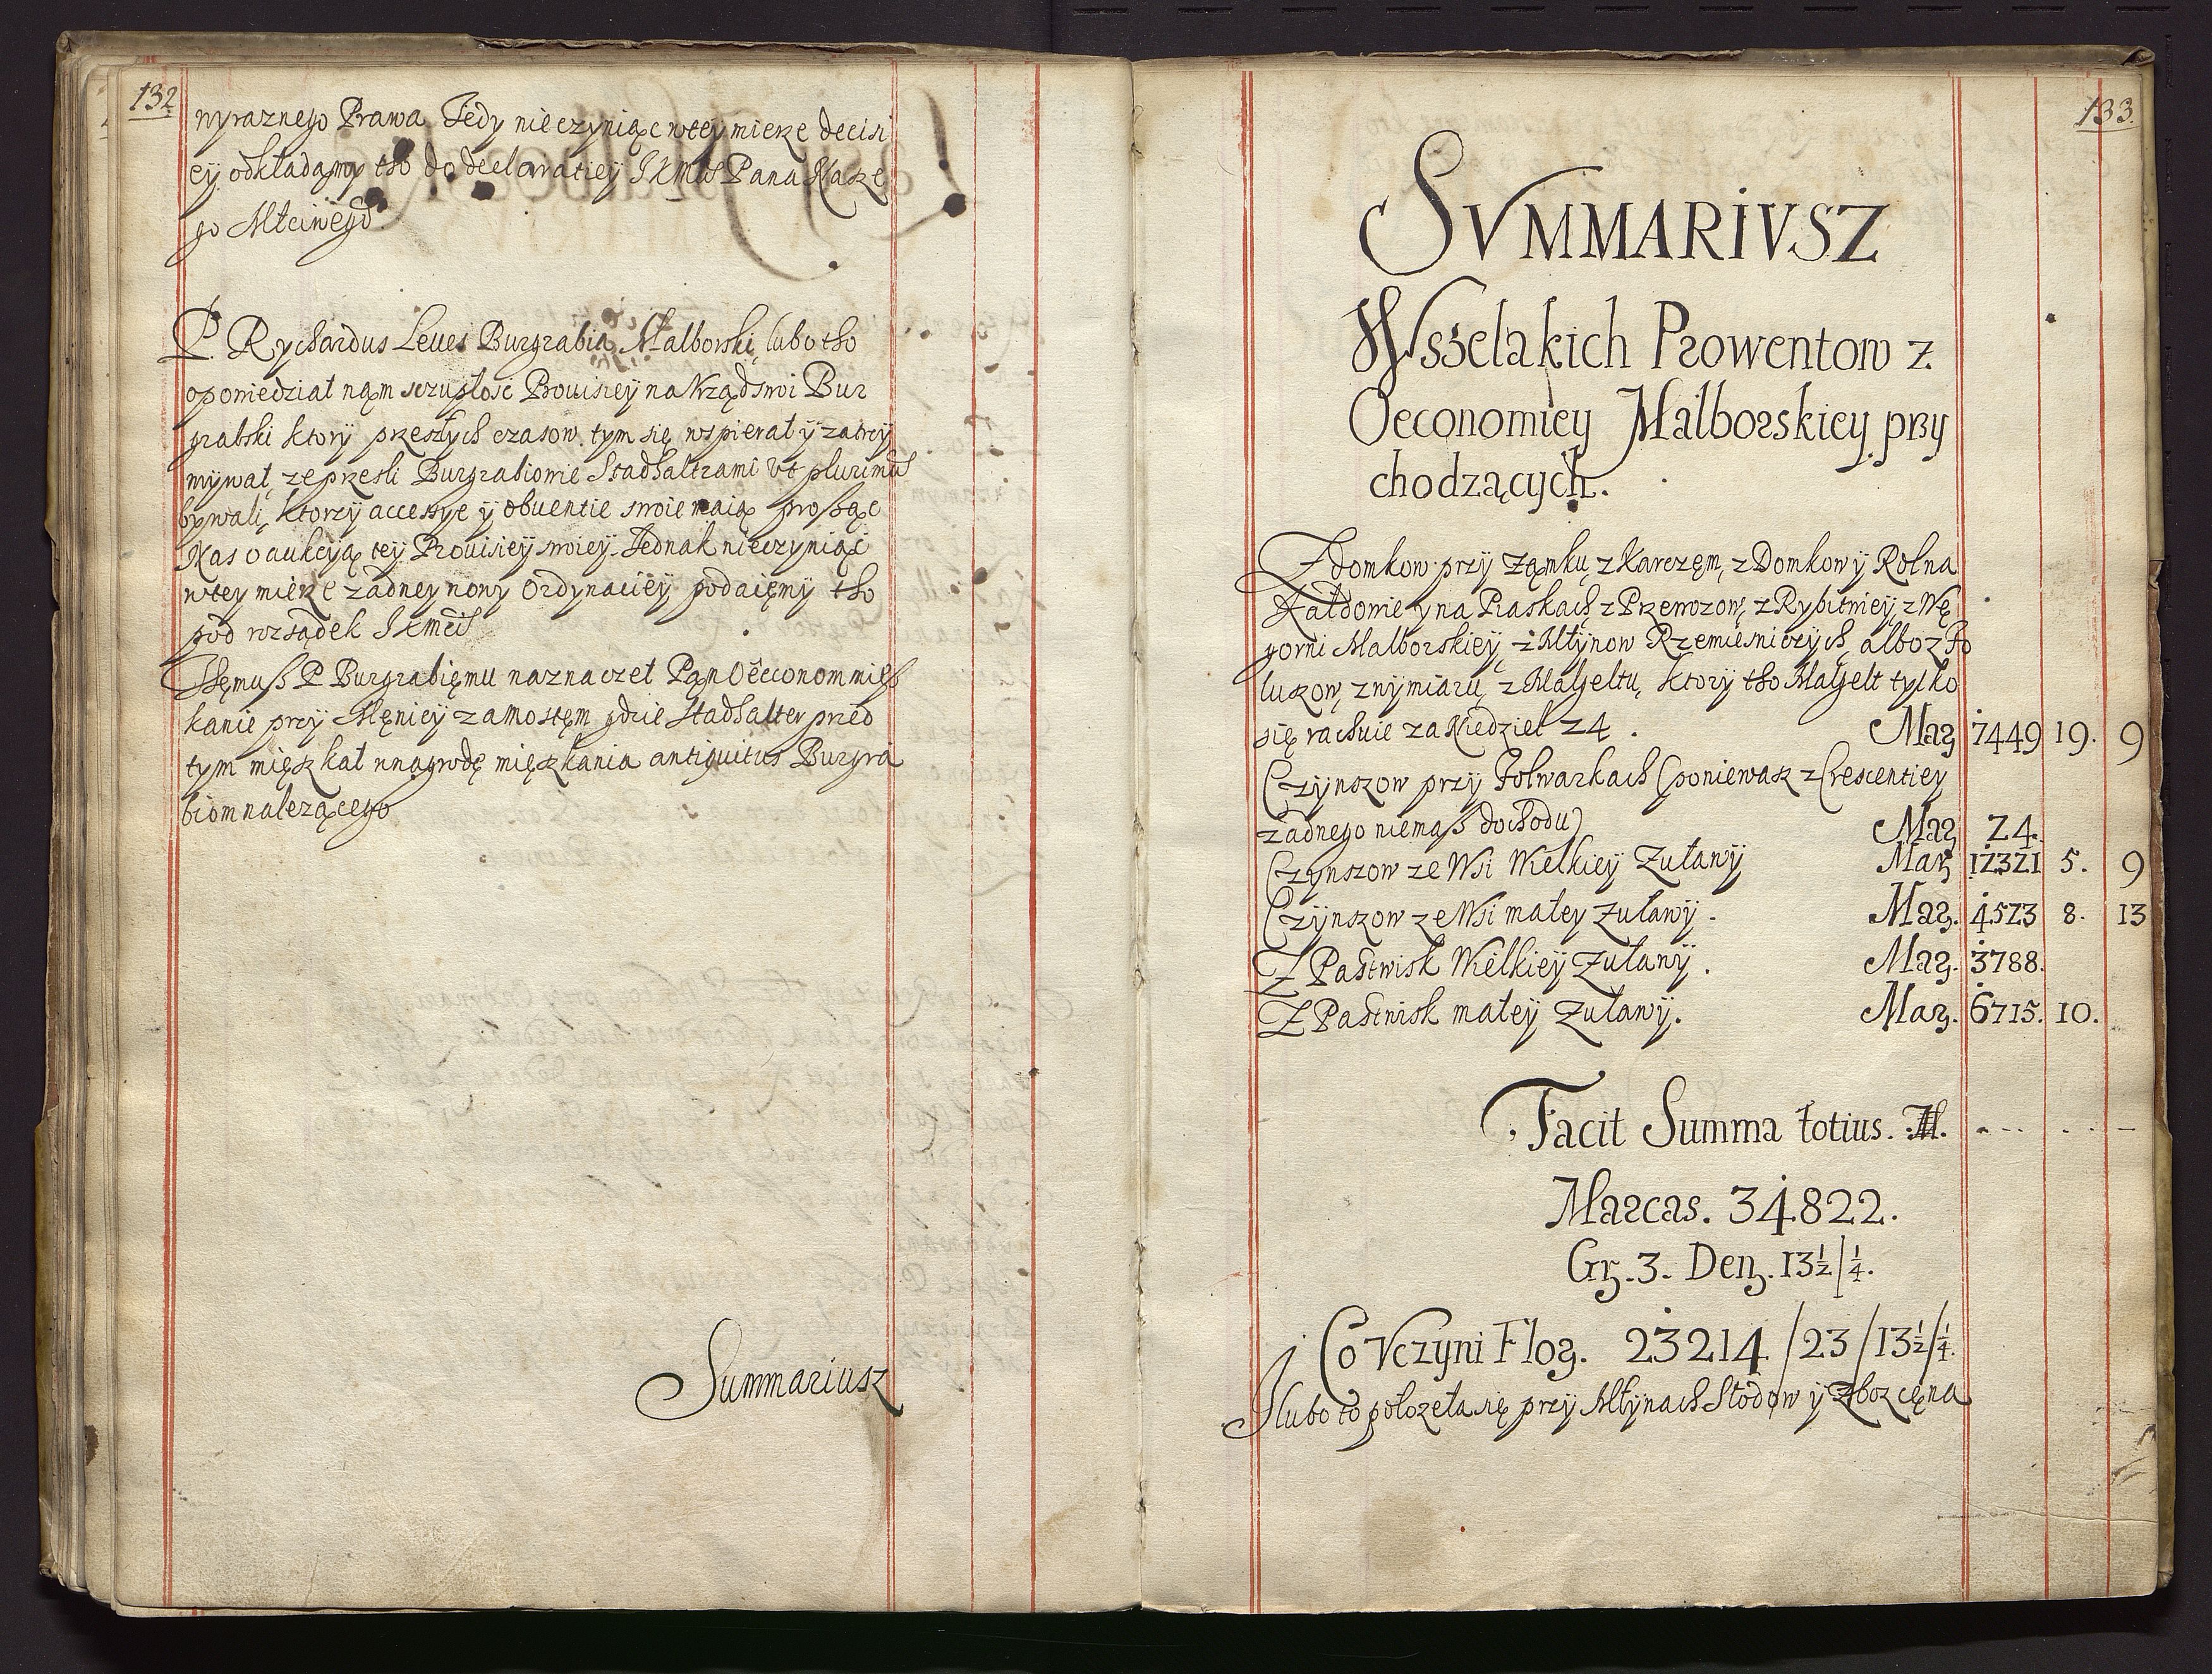 132
wyraznego Prawa Tedy nie czyniąc wtey mierze decisi
ey odkładamy tho do declaratiey JKMci Pana Nasze
go Młciwego.
P. Rychardus Leues Burgrabia Malborski, lubo tho
opowiedział nąm sczupłosc Prouisiey na Vrząd swoi Bur
grabski ktory przeszłych czasow tym się wspierał ÿ zatrzÿ
mÿwał, ze przesli Burgrabiowie Stadhaltrami vt plurimũ
bÿwali, ktorzÿ accessÿe ÿ obuentie swoie maią prosząc
Nas o aukcyią teÿ Prouisieÿ swoieÿ. Jednak nieczÿniąc
wtey mierze zadneÿ nowÿ Ordÿnacieÿ podaięmÿ tho
pod rozsądek JKMci
Thęmusz P Burgrabięmu naznaczeł Pąn Oeconom miesz
kanie przÿ Męnicÿ za mostęm gdzie Stadhalter przed
tym mięszkał w nagrodę mięszkania antiquitus Burgra
biom nalezącego
Summariusz
133.
SVMMARIVSZ
Wsselakich Prowentow z
Oeconomiey Malborskiey przy
chodzących.
Z domkow przÿ Ząmku, z Karczęm, z Domkow ÿ Rol na
Kałdowie ÿ na Piaskach, z Przewozow, z Rybitwieÿ, z Wę
gorni Malborskieÿ, z Młÿnow Rzemiesniczÿch, albo z Fo
luszow, z wÿmiaru, z Malgeltu, ktorÿ tho Malgelt tylko
się rachuie za Niedziel 24. Marz 7449 19. 9
Czÿnszow przÿ Folwarkach (poniewasz z Crescentieÿ
zadnego niemasz dochodu) Marz 24.
Czynszow ze Wsi Wielkieÿ Zuławÿ Marz 12321 5. 9
Czÿnszow ze Wsi małeÿ Zuławÿ. Marz. 4523 8. 13
Z Pastwisk Wielkieÿ Zuławÿ. Marz. 3788.
Z Pastwisk małeÿ Zuławÿ. Marz. 6715. 10.
Facit Summa totius. M.
Marcas. 34822.
Gr. 3. Den. 13½/¼.
Co Vczyni Flor. 23214/23/13½/¼.
J lubo to połozeła się przÿ Młÿnach Słodow ÿ Zboz cęna